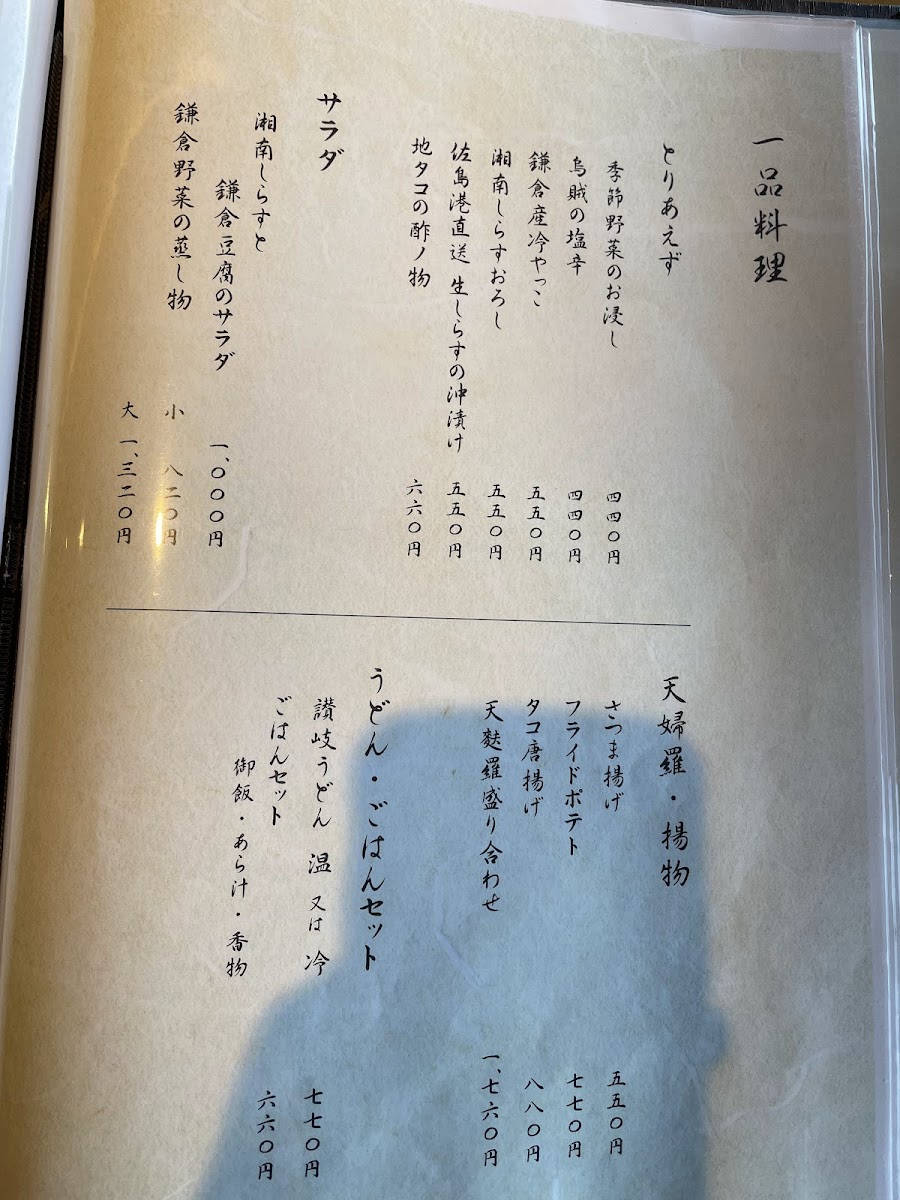 一品料理
とりあえず
季節野菜のお浸し 四四〇円
烏賊の塩辛 四四〇円
鎌倉産冷やっこ 五五〇円
湘南しらすおろし 五五〇円
佐島港直送 生しらすの沖漬け 五五〇円
地タコの酢ノ物 六六〇円
サラダ
湘南しらすと
鎌倉豆腐のサラダ 一、〇〇〇円
鎌倉野菜の蒸し物 小 八二〇円
大 一、三二〇円
天婦羅・揚物
さつま揚げ 五五〇円
フライドポテト 七七〇円
タコ唐揚げ 八八〇円
天麩羅盛り合わせ 一、七六〇円
うどん・ごはんセット
讃岐うどん 温 又は 冷 七七〇円
ごはんセット 六六〇円
御飯・あら汁・香物